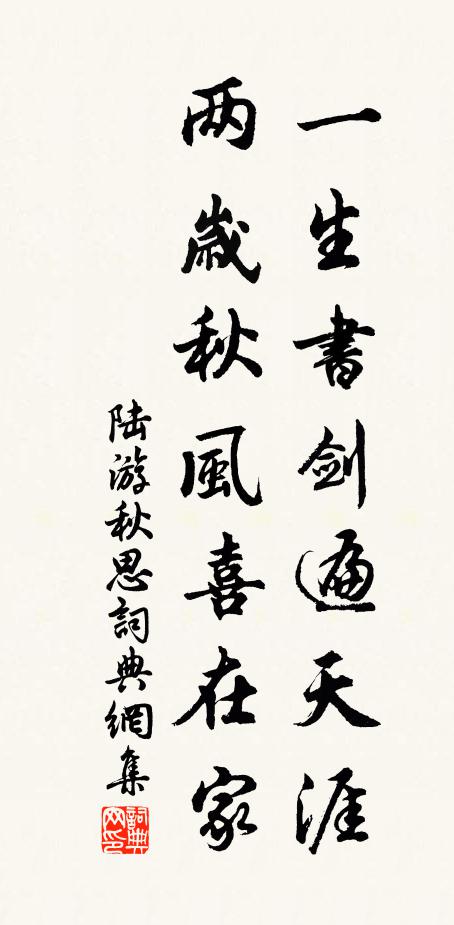 一生書剑遍天涯
两歲秋風喜在家
陆游秋思詞典網集
詞典网印